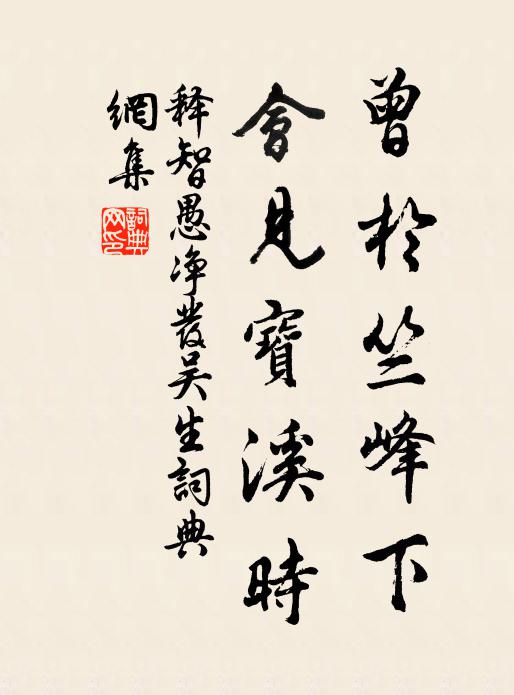 曾於竺峰下
會見寶溪時
释智愚净發吴生詞典
網集
詞典
网印